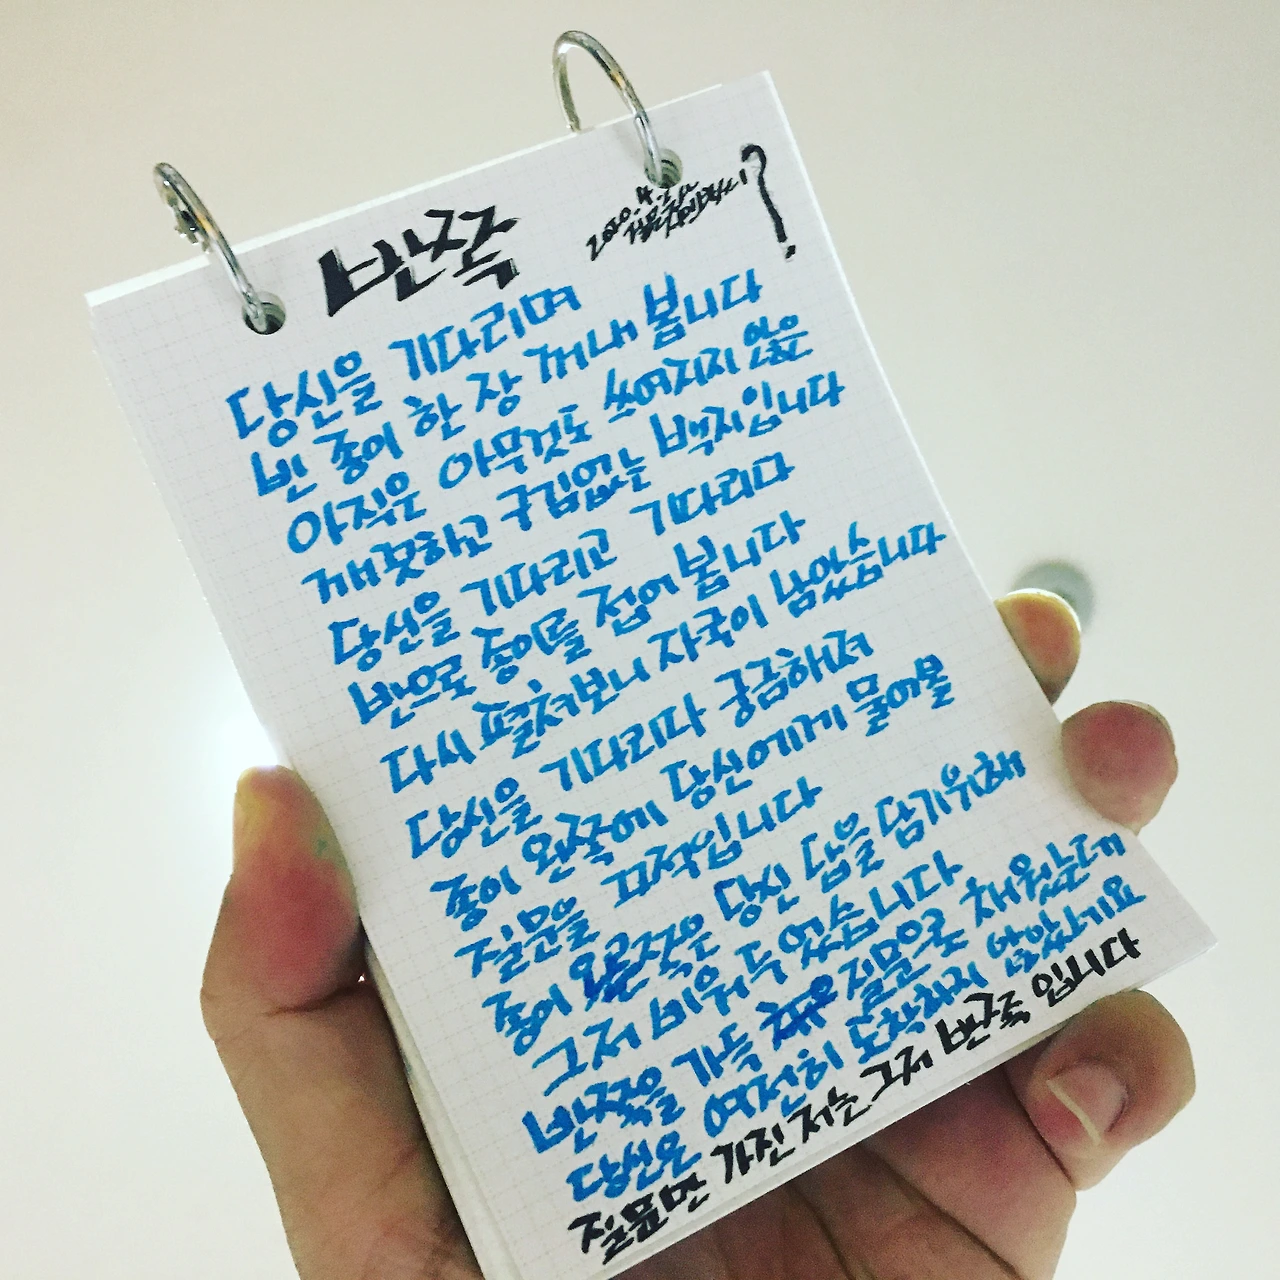 반쪽
2020.4.
?
당신을 기다리며
빈 종이 한 장 꺼내 봅니다
아직은 아무것도 쓰여지지 않은
깨끗하고 구김없는 백지입니다
당신을 기다리고 기다리다
반으로 종이를 접어 봅니다
다시 펼쳐보니 자국이 남았습니다
당신을 기다리다 궁금해져
종이 왼쪽에 당신에게 물어볼
질문을 끄적입니다
종이 오른쪽은 당신 답을 담기위해
그저 비워 두었습니다
반쪽을 가득 질문으로 채웠는데
당신은 여전히 도착하지 않았기에요
질문만 가진 저는 그저 반쪽 입니다